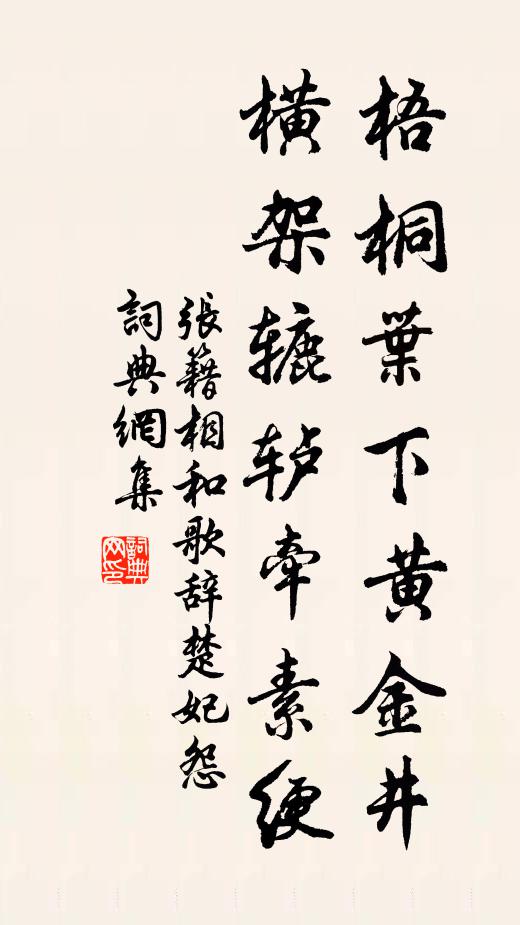 梧桐葉下黄金井
橫架辘轳牽素綆
張籍相和歌辞楚妃怨
詞典網集
詞典网印